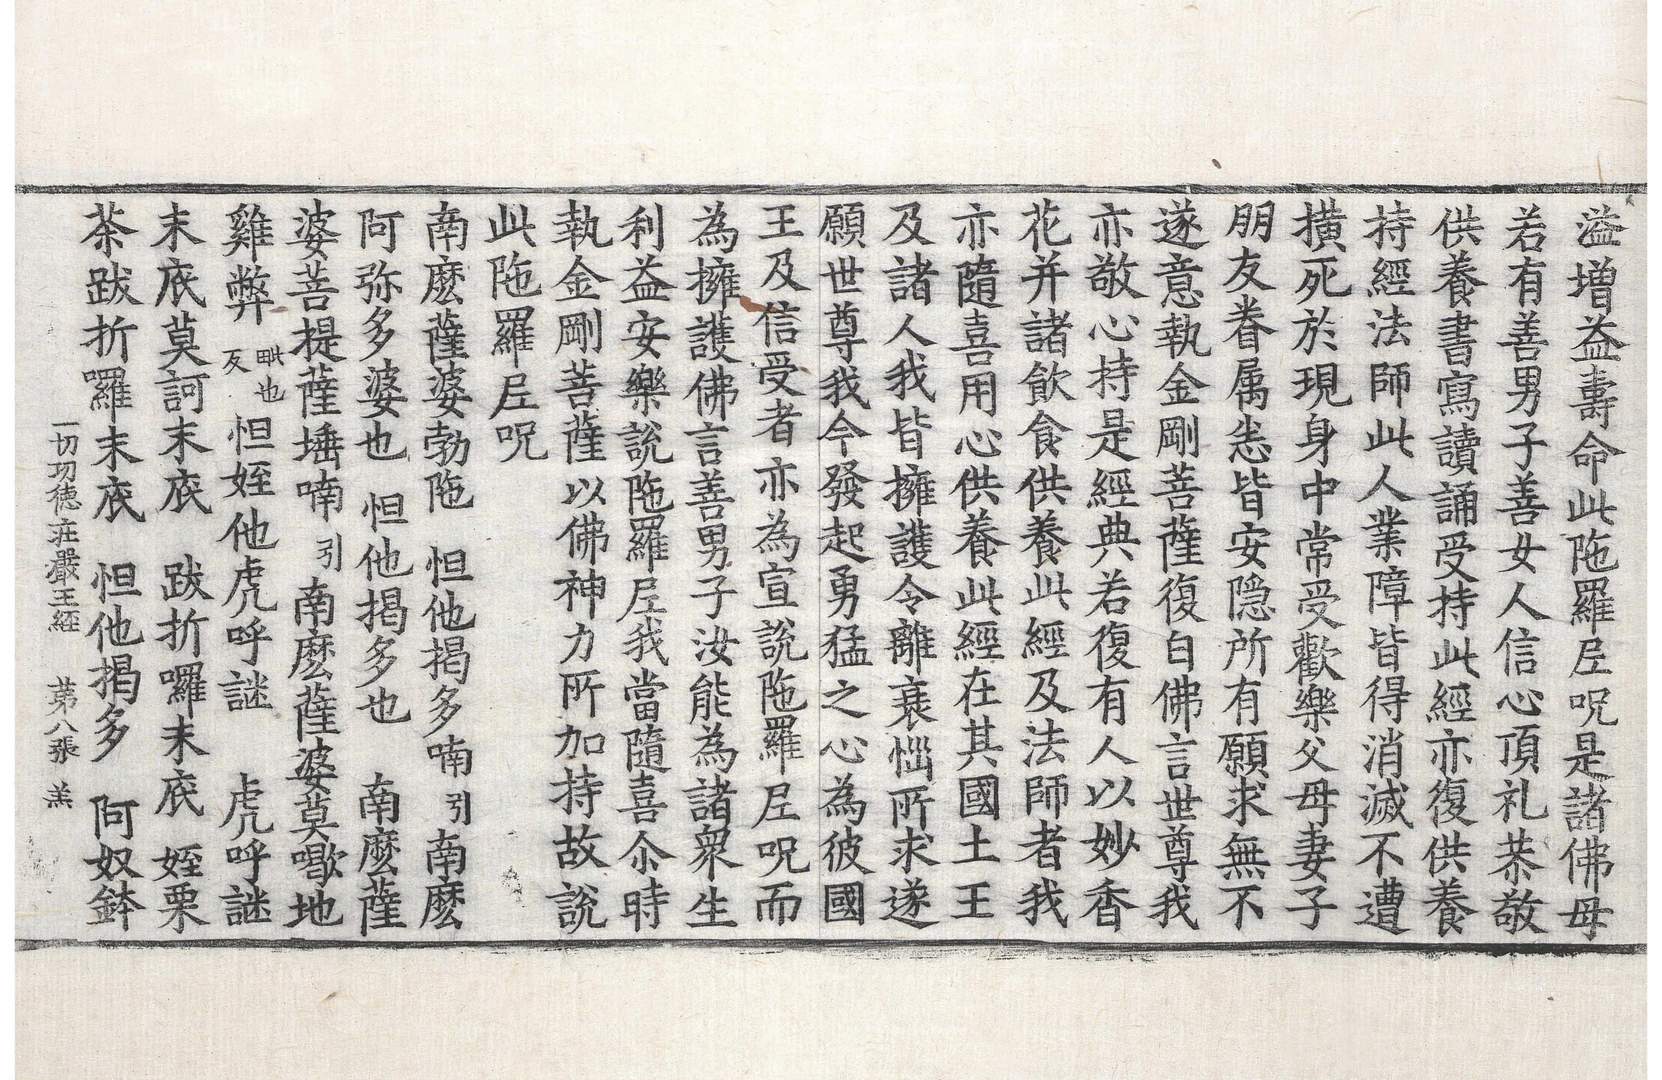 溢增益壽命此陁羅尼呪是諸佛母
若有善男子善女人信心頂礼恭敬
供養書寫讀誦受持此經亦復供養
持經法師此人業障皆得消滅不遭
橫死於現身中常受歡樂父母妻子
朋友眷属悉皆安隱所有願求無不
遂意執金剛菩薩復白佛言世尊我
亦敬心持是經典若復有人以妙香
花并諸飲食供養此經及法師者我
亦隨喜用心供養此經在其國土王
及諸人我皆擁護令離衰惱所求遂
願世尊我今發起勇猛之心為彼國
王及信受者亦為宣說陁羅尼呪而
為擁護佛言善男子汝能為諸衆生
利益安樂說陁羅尼我當隨喜尒時
執金剛菩薩以佛神力所加持故說
此陁羅尼呪
南麽薩婆勃陁 怛他揭多喃引南麽
阿弥多婆也 怛他揭多也 南麽薩
婆菩提薩埵喃引南麽薩婆莫㘑地
雞弊毗也反怛姪他虎呼謎 虎呼謎
末底莫訶末底 跋折囉末底 姪栗
茶跋折囉末底 怛他揭多 阿奴鉢
一切功德莊嚴王經 第八張 羔